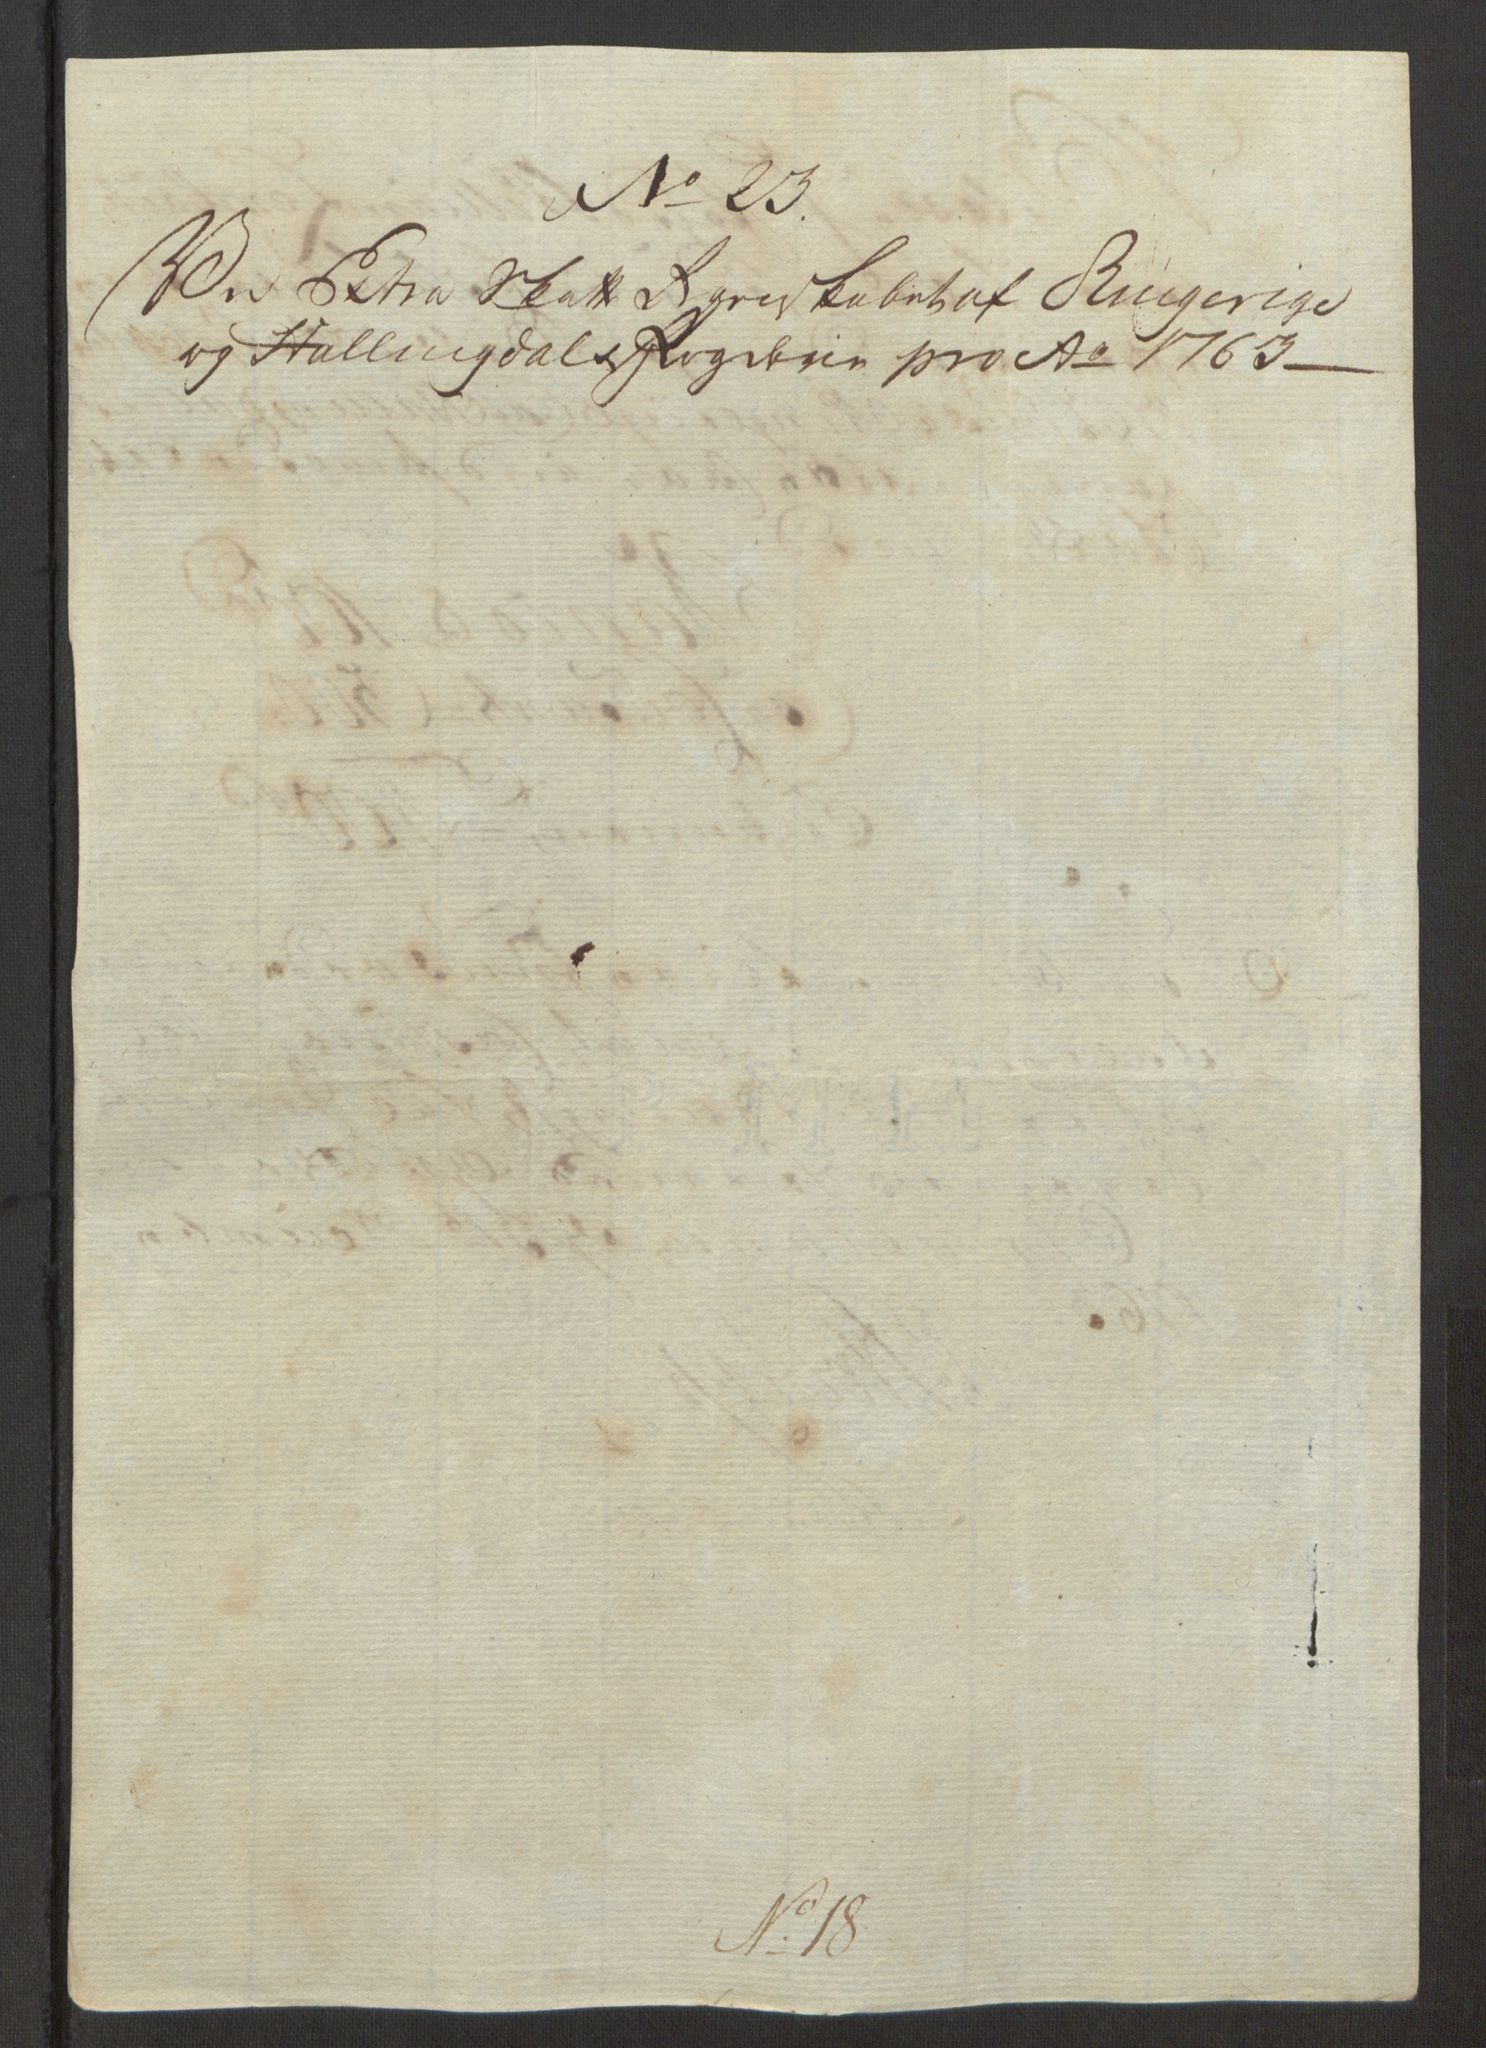 No 23.
Ved Extra Skatt Regnskabet af Ringerige
og Hallingdals Fogderie pro Ao 1763
No 18